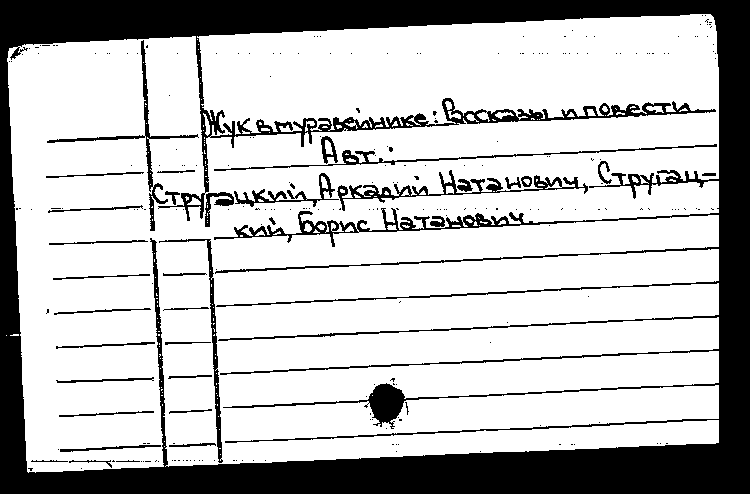 Жук в муравейнике: Рассказы и повести
Авт.:
Стругацкий, Аркадий Натанович, Стругац-
кий, Борис Натанович.